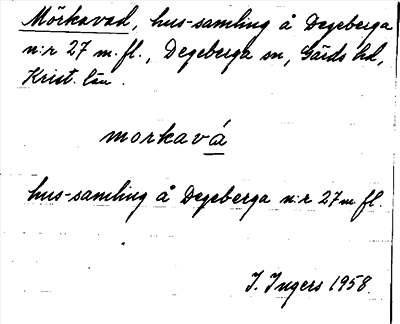 Mörkavad, hus-samling å Degeberga
n:r 27 m. fl., Degeberga sn, Gärds hd,
Krist. län.
morkavá
hus-samling å Degeberga n:r 27 m fl.
I. Ingers 1958.